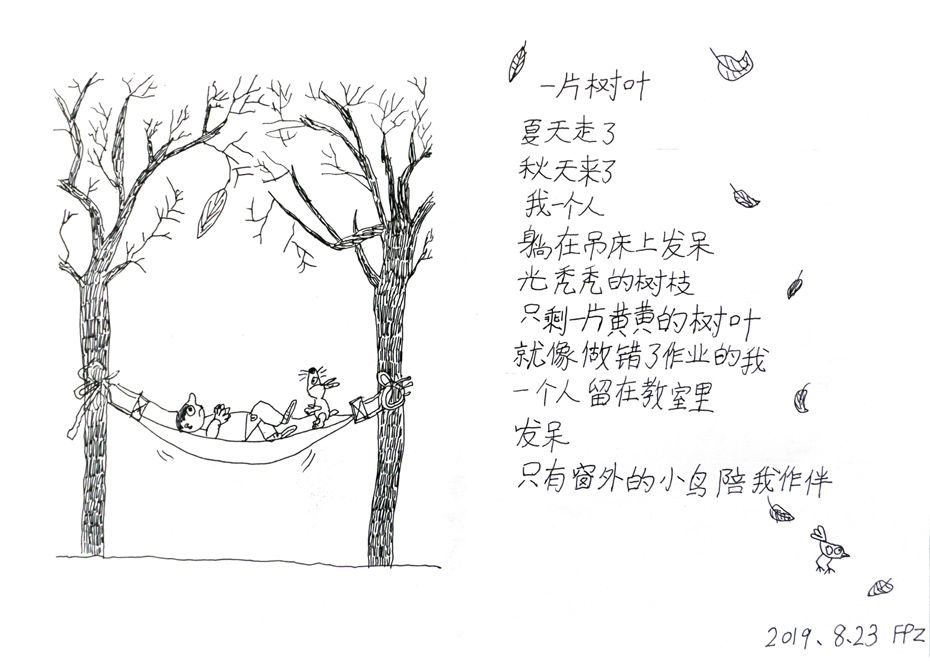 一片树叶
夏天走了
秋天来了
我一个人
躺在吊床上发呆
光秃秃的树枝
只剩一片黄黄的树叶
就像做错了作业的我
一个人留在教室里
发呆
只有窗外的小鸟陪我作伴
2019、8.23 FPZ